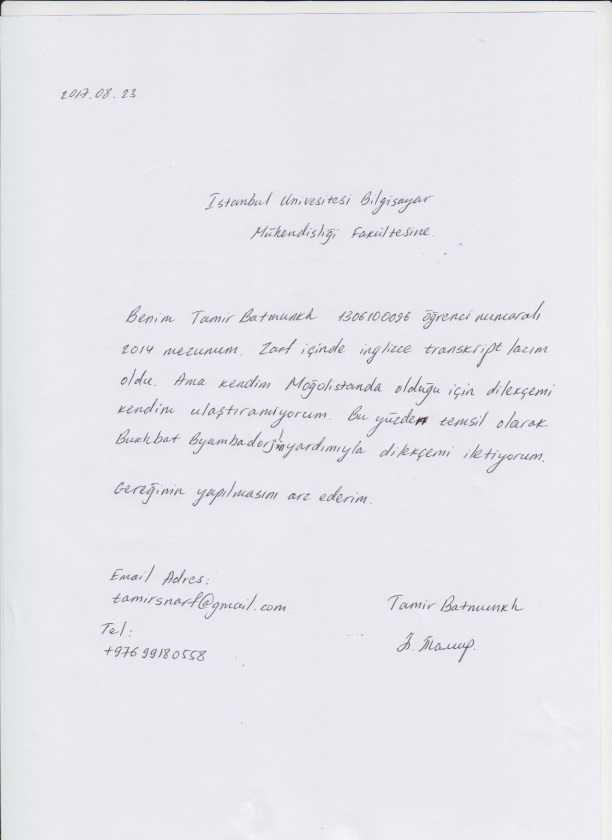 2017.08.23
İstanbul Univesitesi Bilgisayar
Mühendisliği Fakültesine.
Benim Tamir Batmunkh 1306100096 öğrenci numaralı
2014 mezunum. Zarf içinde inglizce transkript lazım
oldu. Ama kendim Moğolistanda olduğu için dilekçemi
kendim ulaştıramıyorum. Bu yüzden temsil olarak
Bukhbat Byambadorj'ın yardımıyla dilekçemi iletiyorum.
Gereğinin yapılmasını arz ederim.
Email Adres:
tamirsnarf@gmail.com
Tel:
+976 99180558
Tamir Batmunkh
Б. Тамир.